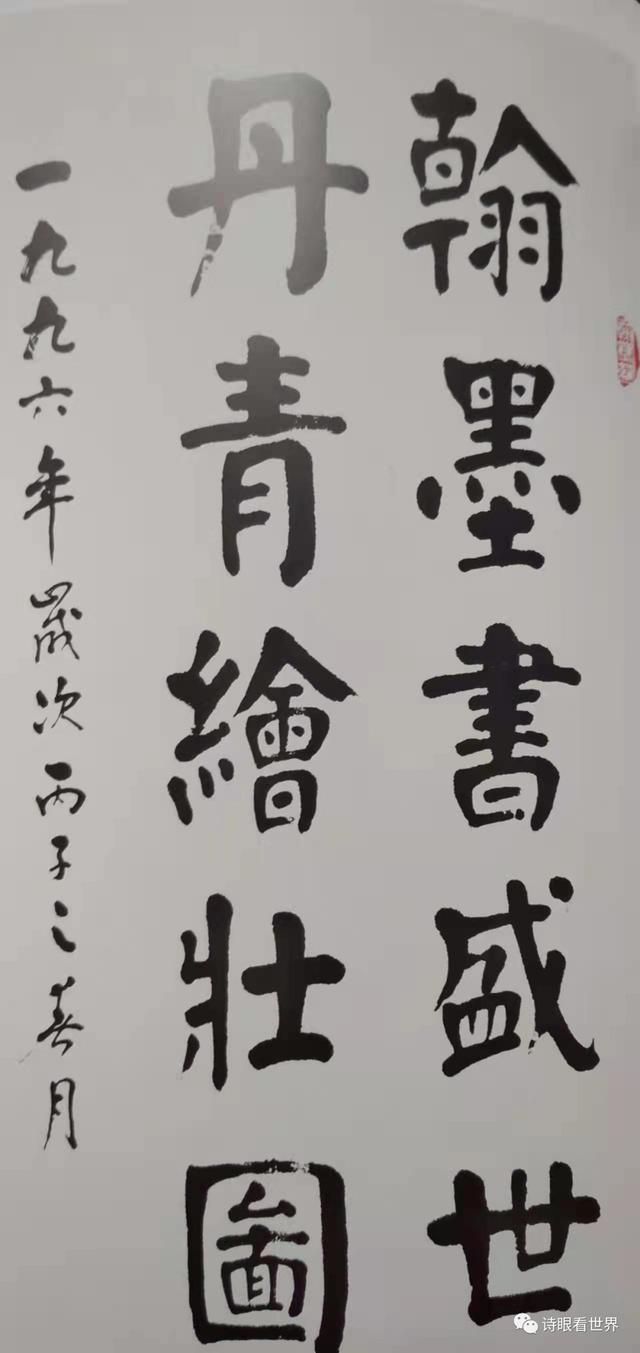 翰墨書盛世
丹青繪壯圖
一九九六年歲次丙子之春月
诗眼看世界